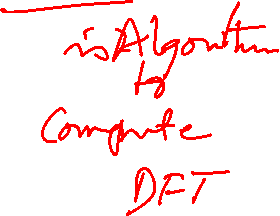 is Algorithm
to
Compute
DFT